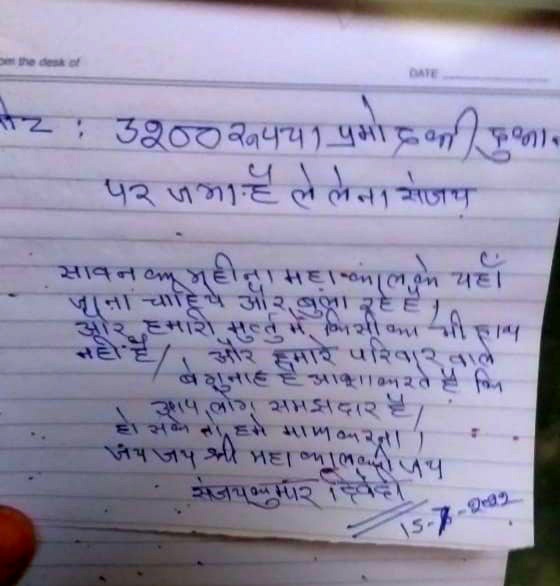 om the desk of
DATE
नोट : 3200 रूपया प्रमोद की दुकान
पर जमा है ले लेना संजय
सावन का महीना महाकाल के यहाँ
जाना चाहिये और बुला रहे है।
और हमारी मृत्यु में किसी का भी हाथ
नहीं है/ और हमारे परिवार वाले
बेगुनाह है आशा करते है कि
आप लोग समझदार है/
हो सके तो हमे माफ करना।
जय जय श्री महाकाल की जय
संजय कुमार द्विवेदी
15-7-2022